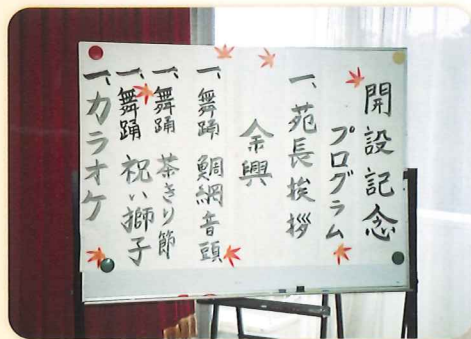 開設記念
プログラム
一、苑長挨拶
余興
一、舞踊 鯛網音頭
一、舞踊 茶きり節
一、舞踊 祝い獅子
一、カラオケ